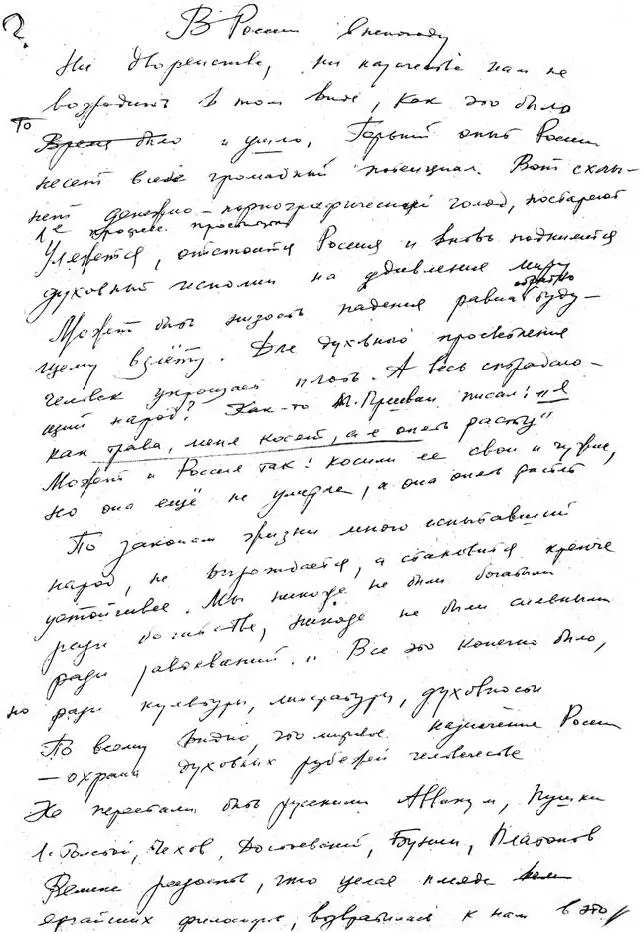 2.
В России в непогоду
Ни дворянства, ни казачества нам не
возродить в том виде, как это было
То
Время было и ушло, Горький опыт России
несет в себе громадный потенциал. Вот схлы-
нет денежно-порнографический голод, постареют
1е
Уляжется, отстоится Россия и вновь поднимется
духовный исполин на удивление миру
Может быть низость падения равна
буду-
щему взлёту. Для духовного просветления
человек укрощает плоть. А весь
щий народ? Как-то М. Пришвин писал: "я
как трава, меня косят, а я опять расту"
Может и Россия так! Косили ее свои и чужие,
но она ещё не умерла, а она опять растёт
По законам жизни много испытавший
народ, не вырождается, а становится крепче
устойчивее. Мы никогда не были богатыми
ради богатства, никогда не были сильными
ради завоеваний. Все это конечно было,
но ради культуры, литературы, духовности
По всему видно, это мировое назначение России
— охрана духовных рубежей человечества
Не перестали быть русскими Аввакум, Пушкин
Л. Толстой, Чехов, Достоевский, Бунин, Платонов
Велика радость, что целая плеяда
философов, возвратилась к нам в это